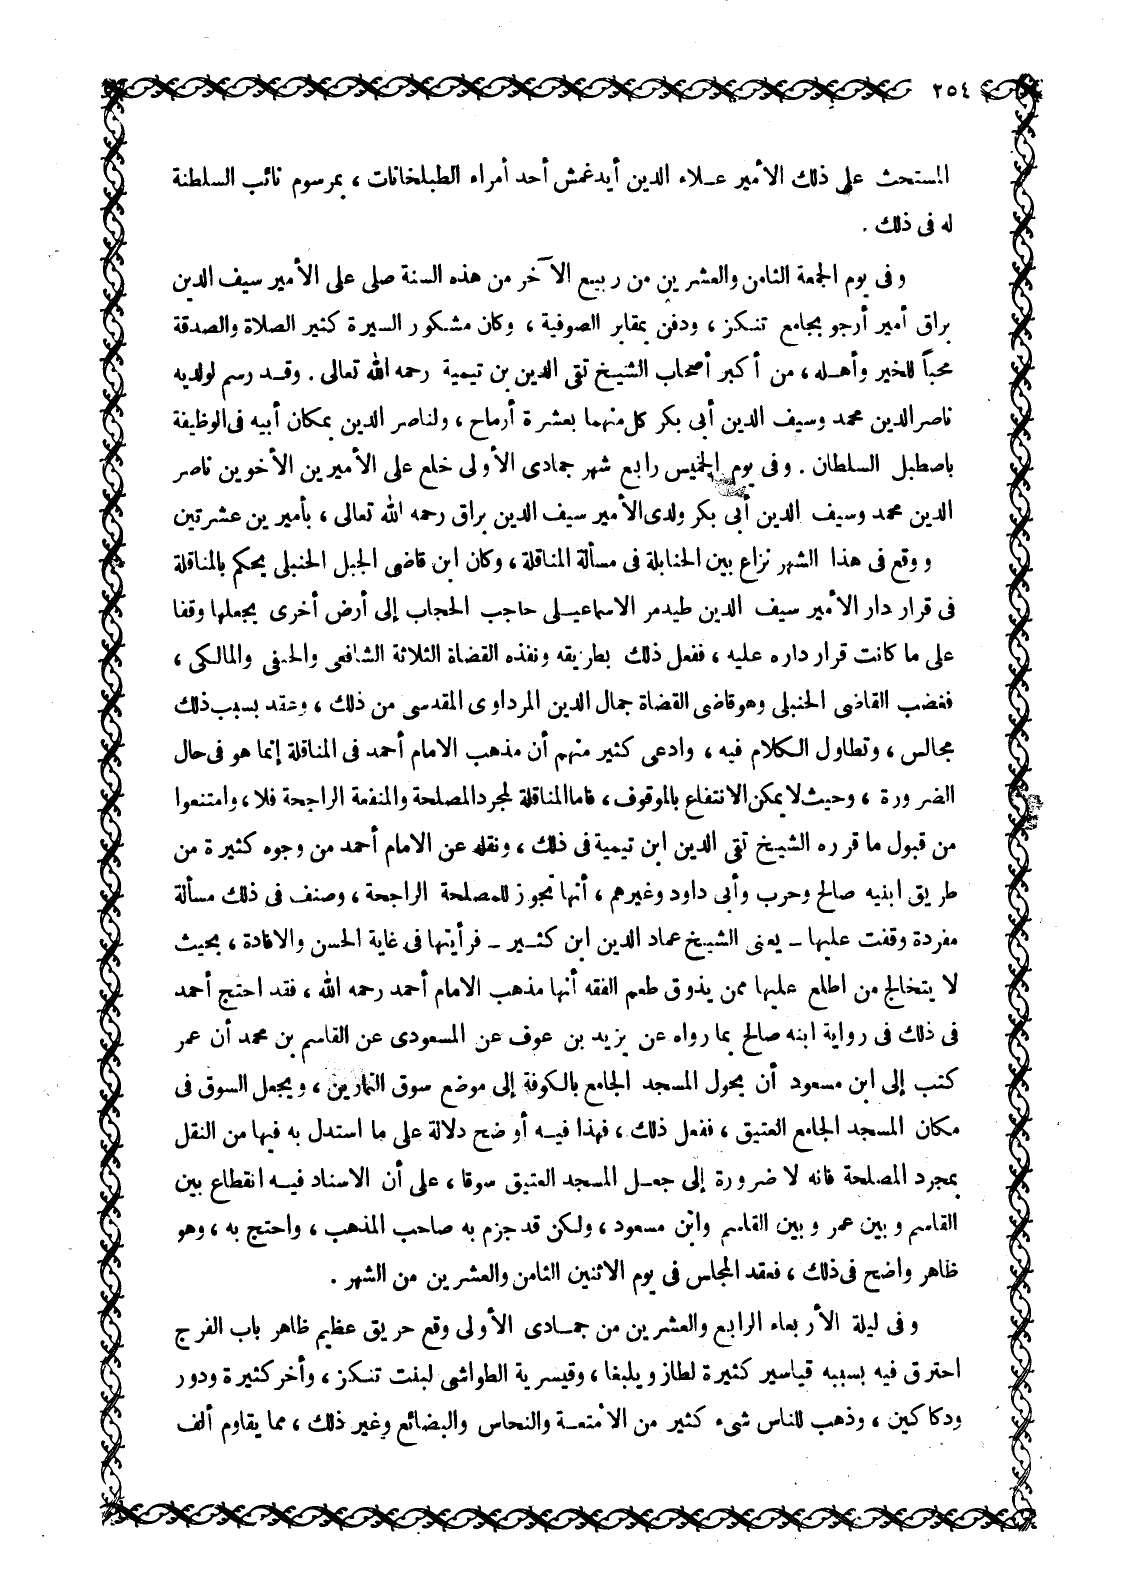 ٢٥٤
المستحث على ذلك الأمير علاء الدين أيدغمش أحد أمراء الطبلخانات ، بمرسوم نائب السلطنة
له فى ذلك .
وفى يوم الجمعة الثامن والعشرين من ربيع الآخر من هذه السنة صلى على الأمير سيف الدين
براق أمير أرجو بجامع تنكز ، ودفن بمقابر الصوفية ، وكان مشكور السيرة كثير الصلاة والصدقة
محباً للخير وأهله ، من أكبر أصحاب الشيخ تقى الدين بن تيمية رحمه الله تعالى . وقد رسم لولديه
ناصر الدين محمد وسيف الدين أبى بكر كل منهما بعشرة أرماح ، ولناصر الدين بمكان أبيه فى الوظيفة
باصطبل السلطان . وفى يوم الخميس رابع شهر جمادى الأولى خلع على الأميرين الأخوين ناصر
الدين محمد وسيف الدين أبى بكر ولدى الأمير سيف الدين براق رحمه الله تعالى ، بأميرين عشرتين
ووقع فى هذا الشهر نزاع بين الحنابلة فى مسألة المناقلة ، وكان ابن قاضى الجبل الحنبلى يحكم بالمناقلة
فى قرار دار الأمير سيف الدين طيدمر الاسماعيلى حاجب الحجاب إلى أرض أخرى يجعلها وقفا
على ما كانت قرار داره عليه ، ففعل ذلك بطريقه ونفذه القضاة الثلاثة الشافعى والحنفى والمالكى ،
فغضب القاضى الحنبلى وهو قاضى القضاة جمال الدين المرداوى المقدسى من ذلك ، وعقد بسبب ذلك
مجالس ، وتطاول الكلام فيه ، وادعى كثير منهم أن مذهب الامام أحمد فى المناقلة إنما هو فى حال
الضرورة ، وحيث لا يمكن الانتفاع بالموقوف ، فاما المناقلة لمجرد المصلحة والمنفعة الراجحة فلا ، وامتنعوا
من قبول ما قرره الشيخ تقى الدين ابن تيمية فى ذلك ، ونقله عن الامام أحمد من وجوه كثيرة من
طريق ابنيه صالح وحرب وأبى داود وغيرهم ، أنها تجوز للمصلحة الراجحة ، وصنف فى ذلك مسألة
مفردة وقفت عليها - يعنى الشيخ عماد الدين ابن كثير - فرأيتها فى غاية الحسن والافادة ، بحيث
لا يتخالج من اطلع عليها ممن يذوق طعم الفقه أنها مذهب الامام أحمد رحمه الله ، فقد احتج أحمد
فى ذلك فى رواية ابنه صالح بما رواه عن يزيد بن عوف عن المسعودى عن القاسم بن محمد أن عمر
كتب إلى ابن مسعود أن يحول المسجد الجامع بالكوفة إلى موضع سوق التمارين ، ويجعل السوق فى
مكان المسجد الجامع العتيق ، ففعل ذلك ، فهذا فيه أوضح دلالة على ما استدل به فيها من النقل
بمجرد المصلحة فانه لا ضرورة إلى جعل المسجد العتيق سوقا ، على أن الاسناد فيه انقطاع بين
القاسم وبين عمر وبين القاسم وابن مسعود ، ولكن قد جزم به صاحب المذهب ، واحتج به ، وهو
ظاهر واضح فى ذلك ، فعقد المجلس فى يوم الاثنين الثامن والعشرين من الشهر .
وفى ليلة الأربعاء الرابع والعشرين من جمادى الأولى وقع حريق عظيم ظاهر باب الفرج
احترق فيه بسببه قياسير كثيرة لطاز ويلبغا ، وقيسرية الطواشى لبنت تنكز ، وأخر كثيرة ودور
ودكاكين ، وذهب للناس شىء كثير من الأمتعة والنحاس والبضائع وغير ذلك ، مما يقاوم ألف